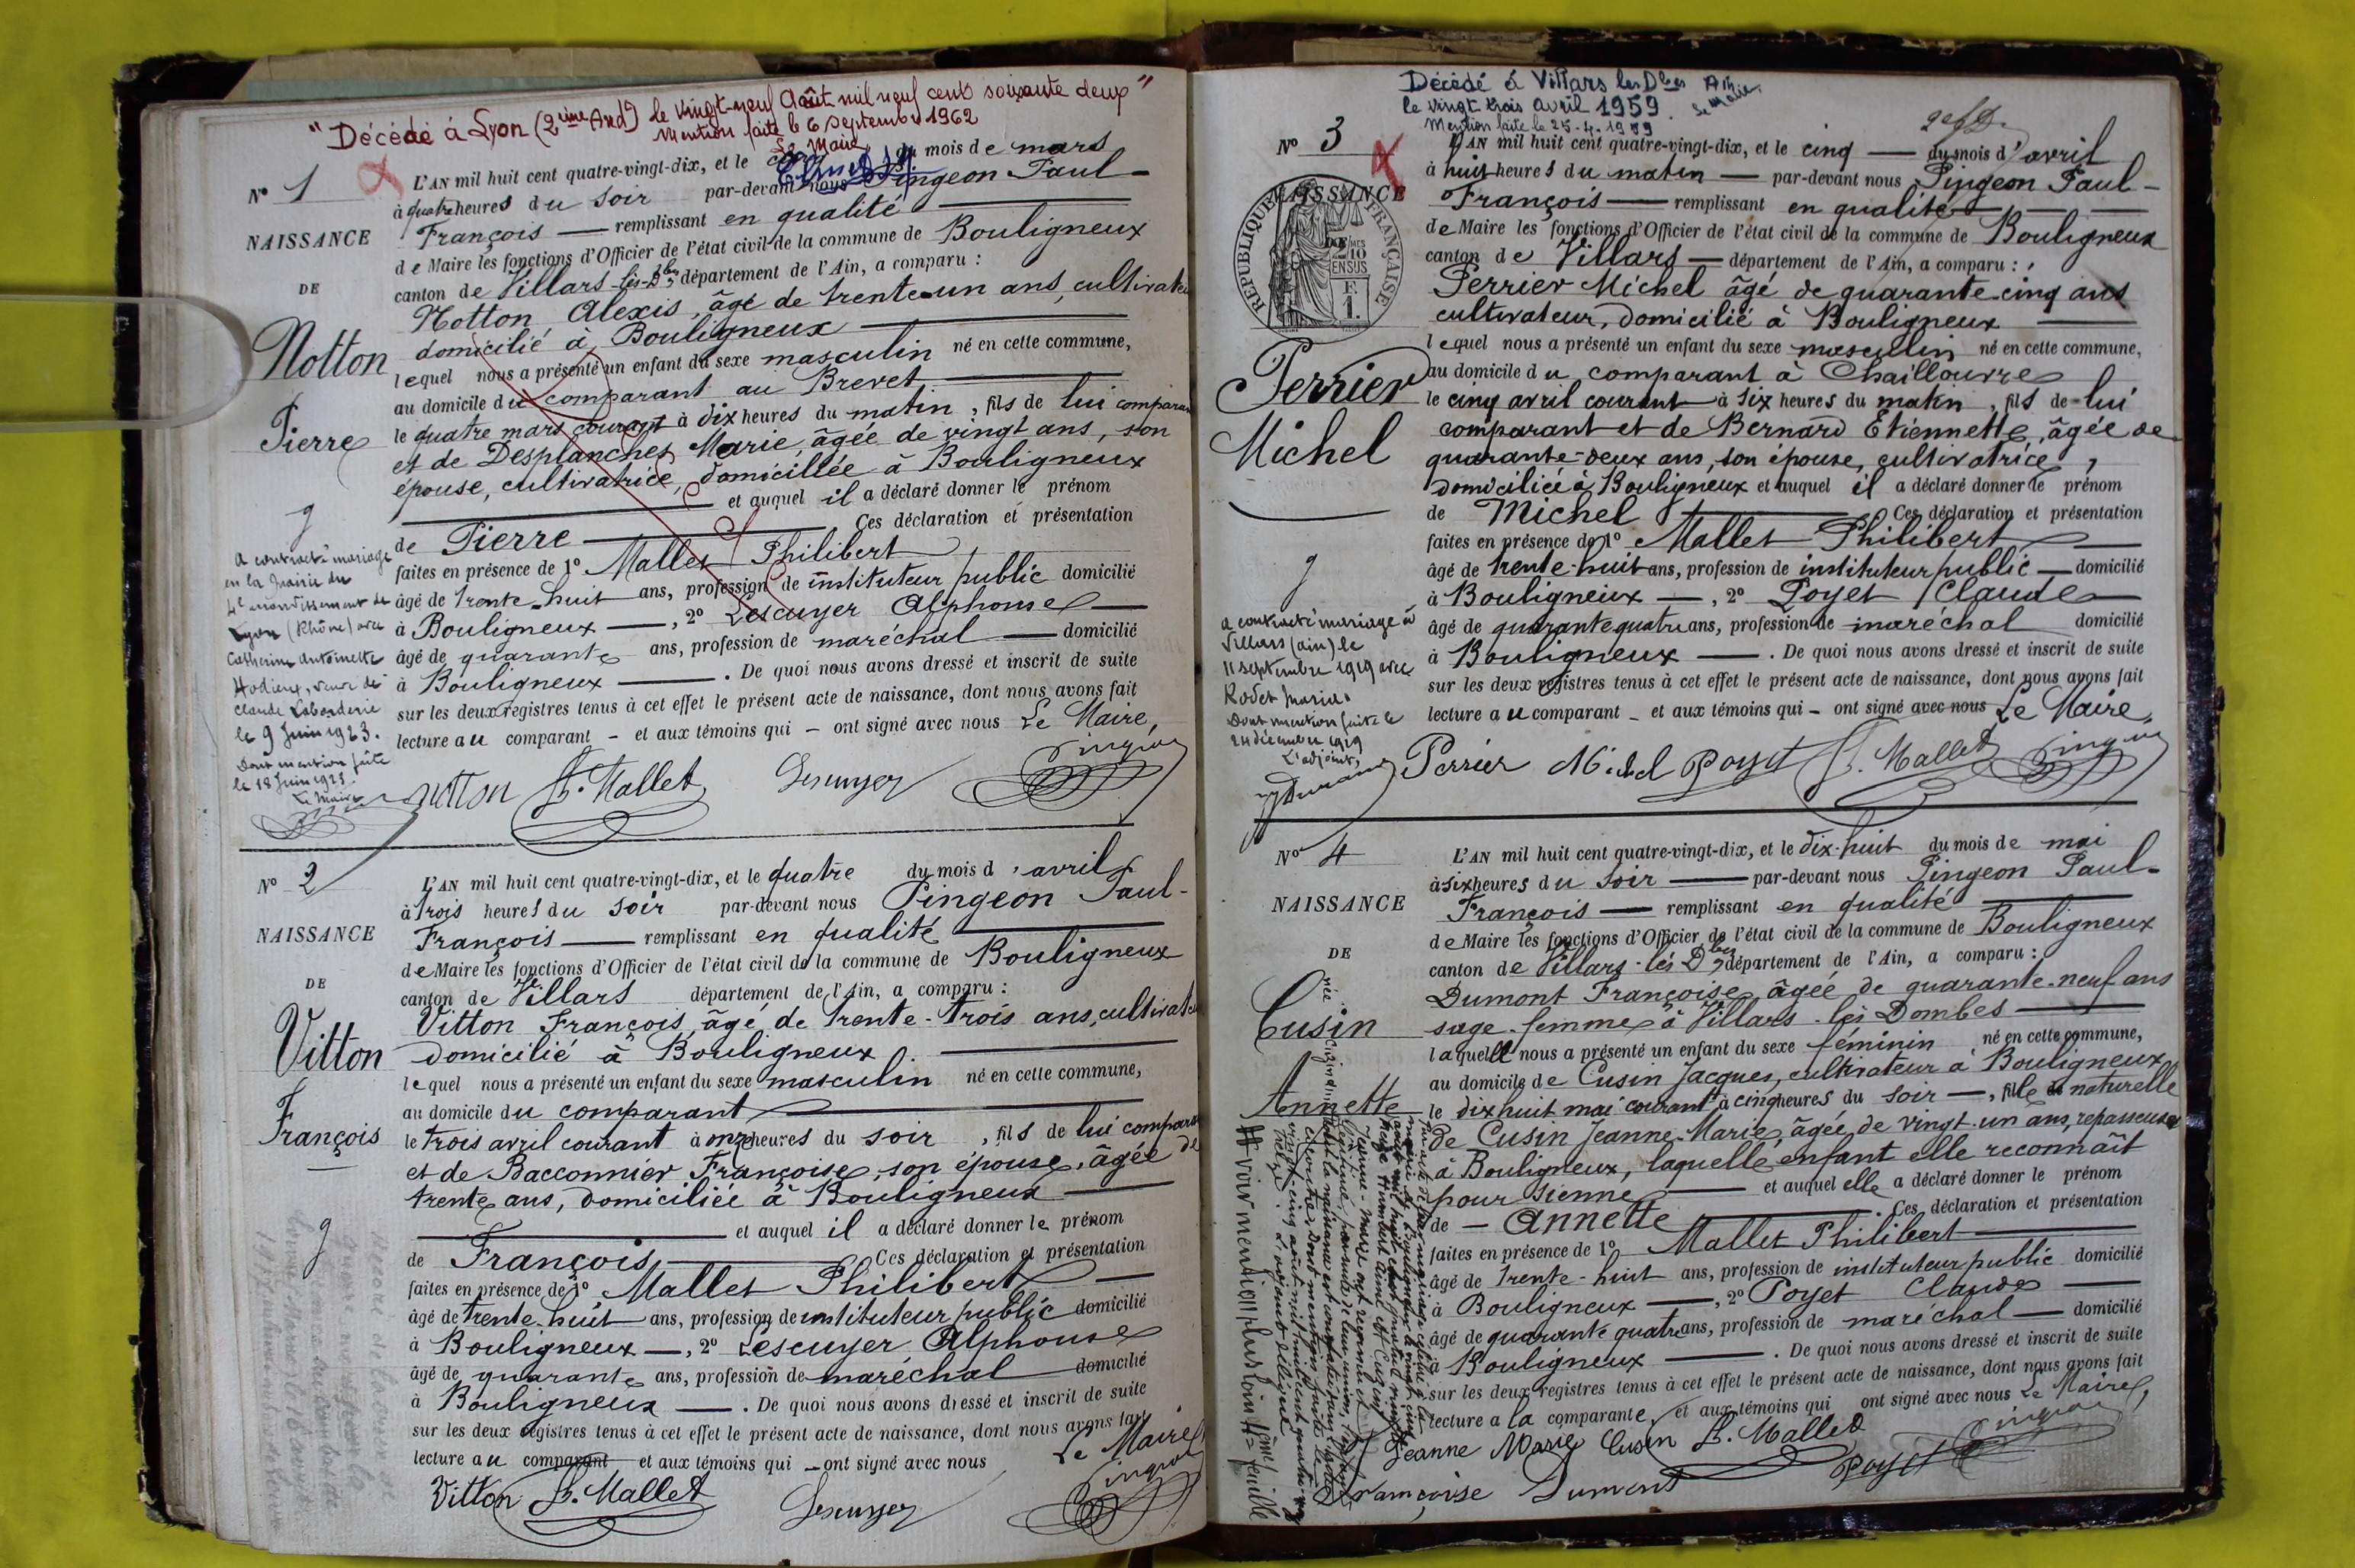 "Décédé à Lyon (2ième Ard) le vingt-neuf Août mil neuf cent soixante deux"
Mention faite le 6 septembre 1962
Le Maire
N° 1
NAISSANCE
DE
Notton
Pierre
L'AN mil huit cent quatre-vingt-dix, et le cinq du mois de mars
à quatre heures du soir par-devant nous Pingeon Paul-
François — remplissant en qualité
de Maire les fonctions d'Officier de l'état civil de la commune de Bouligneux
canton de Villars-les-Dbes département de l'Ain, a comparu :
Notton Alexis, âgé de trente-un ans, cultivateur
domicilié à Bouligneux
lequel nous a présenté un enfant du sexe masculin né en cette commune,
au domicile du comparant au Brevet
le quatre mars courant à dix heures du matin, fils de lui comparant
et de Desplanches Marie, âgée de vingt ans, son
épouse, cultivatrice, domicillée à Bouligneux
et auquel il a déclaré donner le prénom
de Pierre — Ces déclaration et présentation
faites en présence de 1° Mallet Philibert
âgé de trente-huit ans, profession de instituteur public domicilié
à Bouligneux —, 2° Lescuyer Alphonse
âgé de quarante ans, profession de maréchal — domicilié
à Bouligneux — . De quoi nous avons dressé et inscrit de suite
sur les deux registres tenus à cet effet le présent acte de naissance, dont nous avons fait
lecture au comparant - et aux témoins qui - ont signé avec nous Le Maire,
notton Ph. Mallet Lescuyer Pingeon
a contracté mariage
en la Mairie du
4e arrondissement de
Lyon (Rhône) avec
Catherine Antoinette
Hodieux, veuve de
Claude Laborderie
le 9 Juin 1923.
Dont mention faite
le 18 Juin 1923.
Le Maire
N° 2
NAISSANCE
DE
Vitton
François
L'AN mil huit cent quatre-vingt-dix, et le quatre du mois d'avril
à trois heures du soir par-devant nous Pingeon Paul-
François — remplissant en qualité
de Maire les fonctions d'Officier de l'état civil de la commune de Bouligneux
canton de Villars département de l'Ain, a comparu :
Vitton François, âgé de trente-trois ans, cultivateur
domicilié à Bouligneux
lequel nous a présenté un enfant du sexe masculin né en cette commune,
au domicile du comparant
le trois avril courant à onze heures du soir, fils de lui comparant
et de Bacconnier Françoise, son épouse, âgée de
trente ans, domiciliée à Bouligneux
et auquel il a déclaré donner le prénom
de François — Ces déclaration et présentation
faites en présence de 1° Mallet Philibert
âgé de trente-huit ans, profession de instituteur public domicilié
à Bouligneux —, 2° Lescuyer Alphonse
âgé de quarante ans, profession de maréchal — domicilié
à Bouligneux — . De quoi nous avons dressé et inscrit de suite
sur les deux registres tenus à cet effet le présent acte de naissance, dont nous avons fait
lecture au comparant et aux témoins qui - ont signé avec nous Le Maire
Vitton Ph. Mallet Lescuyer Pingeon
Décédé à Villars les Dbes Ain
le vingt trois avril 1959. Le Maire.
Mention faite le 25-4-1959
N° 3
NAISSANCE
RÉPUBLIQUE FRANÇAISE
Perrier
Michel
L'AN mil huit cent quatre-vingt-dix, et le cinq — du mois d'avril
à huit heures du matin — par-devant nous Pingeon Paul-
François — remplissant en qualité
de Maire les fonctions d'Officier de l'état civil de la commune de Bouligneux
canton de Villars — département de l'Ain, a comparu :
Perrier Michel âgé de quarante-cinq ans
cultivateur, domicilié à Bouligneux
lequel nous a présenté un enfant du sexe masculin né en cette commune,
au domicile du comparant à Chaillouvre
le cinq avril courant à six heures du matin, fils de lui
comparant et de Bernard Etiennette, âgée de
quarante-deux ans, son épouse, cultivatrice,
domiciliée à Bouligneux et auquel il a déclaré donner le prénom
de Michel — Ces déclaration et présentation
faites en présence de 1° Mallet Philibert
âgé de trente-huit ans, profession de instituteur public — domicilié
à Bouligneux —, 2° Poyet Claude
âgé de quarante quatre ans, profession de maréchal domicilié
à Bouligneux — . De quoi nous avons dressé et inscrit de suite
sur les deux registres tenus à cet effet le présent acte de naissance, dont nous avons fait
lecture au comparant - et aux témoins qui - ont signé avec nous Le Maire,
Perrier Michel Poyet Ph. Mallet Pingeon
a contracté mariage à
Villars (ain) le
11 septembre 1919 avec
Rodet Marie.
Dont mention faite le
24 décembre 1919
L'adjoint,
N° 4
NAISSANCE
DE
Cusin
Annette
L'AN mil huit cent quatre-vingt-dix, et le dix-huit du mois de mai
à six heures du soir — par-devant nous Pingeon Paul-
François — remplissant en qualité
de Maire les fonctions d'Officier de l'état civil de la commune de Bouligneux
canton de Villars-les-Dbes, département de l'Ain, a comparu :
Dumont Françoise, âgée de quarante-neuf ans
sage-femme à Villars-les Dombes
laquelle nous a présenté un enfant du sexe féminin né en cette commune,
au domicile de Cusin Jacques, cultivateur à Bouligneux
le dix huit mai courant à cinq heures du soir —, fille naturelle
de Cusin Jeanne-Marie, âgée de vingt-un ans, repasseuse
à Bouligneux, laquelle enfant elle reconnaît
pour sienne — et auquel elle a déclaré donner le prénom
de — Annette — Ces déclaration et présentation
faites en présence de 1° Mallet Philibert
âgé de trente-huit ans, profession de instituteur public domicilié
à Bouligneux —, 2° Poyet Claude
âgé de quarante quatre ans, profession de maréchal — domicilié
à Bouligneux — . De quoi nous avons dressé et inscrit de suite
sur les deux registres tenus à cet effet le présent acte de naissance, dont nous avons fait
lecture a la comparante, et aux témoins qui ont signé avec nous Le Maire,
Jeanne Marie Cusin Ph. Mallet Pingeon
Françoise Dumont Poyet
voir mention plus loin